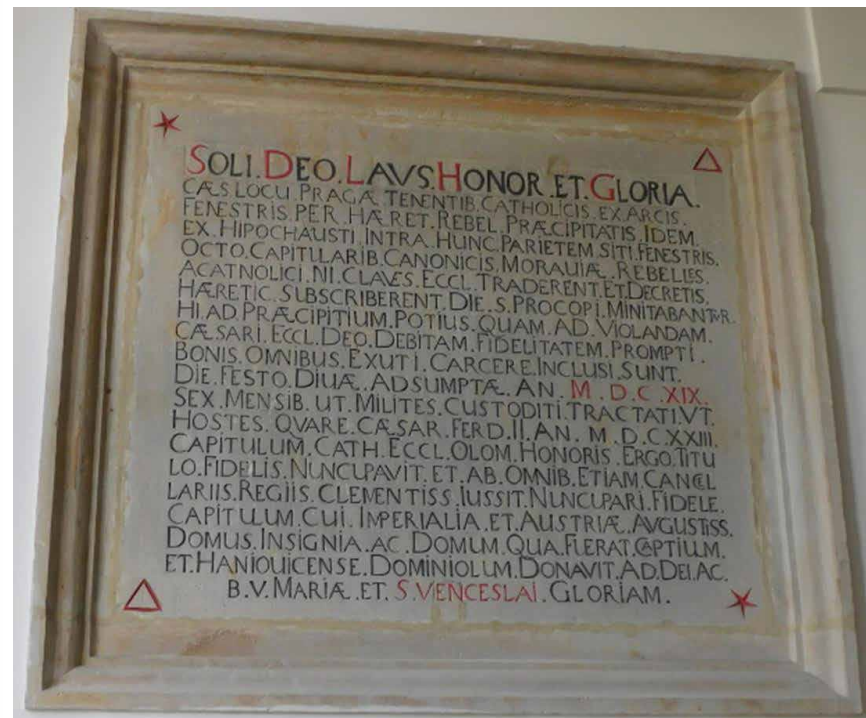 SOLI.DEO.LAVS.HONOR.ET.GLORIA.
CÆS.LOCU.PRAGÆ TENENTIB.CATHOLICIS.EX.ARCIS.
FENESTRIS.PER.HÆRET.REBEL.PRÆCIPITATIS.IDEM.
EX.HIPOCHAUSTI.INTRA.HUNC.PARIETEM.SITI.FENESTRIS.
OCTO.CAPITULARIB.CANONICIS.MORAUIÆ.REBELLES.
ACATNOLICI.NI.CLAVES.ECCL.TRADERENT.ET.DECRETIS.
HÆRETIC.SUBSCRIBERENT.DIE.S.PROCOPI.MINITABANTVR.
HI.AD.PRÆCIPITIUM.POTIUS.QUAM.AD.VIOLANDAM.
CÆSARI.ECCL.DEO.DEBITAM.FIDELITATEM.PROMPTI.
BONIS.OMNIBUS.EXUTI.CARCERE.INCLUSI.SUNT.
DIE.FESTO.DIUÆ.ADSUMPTÆ.AN.M.D.C.XIX.
SEX.MENSIB.UT.MILITES.CUSTODITI.TRACTATI.VT.
HOSTES.QVARE.CÆSAR.FERD.II.AN.M.D.C.XXIII.
CAPITULUM.CATH.ECCL.OLOM.HONORIS.ERGO.TITU
LO.FIDELIS.NUNCUPAVIT.ET.AB.OMNIB.ETIAM.CANCEL
LARIIS.REGIIS.CLEMENTISS.IUSSIT.NUNCUPARI.FIDELE.
CAPITULUM.CUI.IMPERIALIA.ET.AUSTRIÆ.AVGUSTISS.
DOMUS.INSIGNIA.AC.DOMUM.QUA.FUERAT.CAPTIUM.
ET.HANIOUICENSE.DOMINIOLUM.DONAVIT.AD.DEI.AC.
B.V.MARIÆ.ET.S.VENCESLAI.GLORIAM.